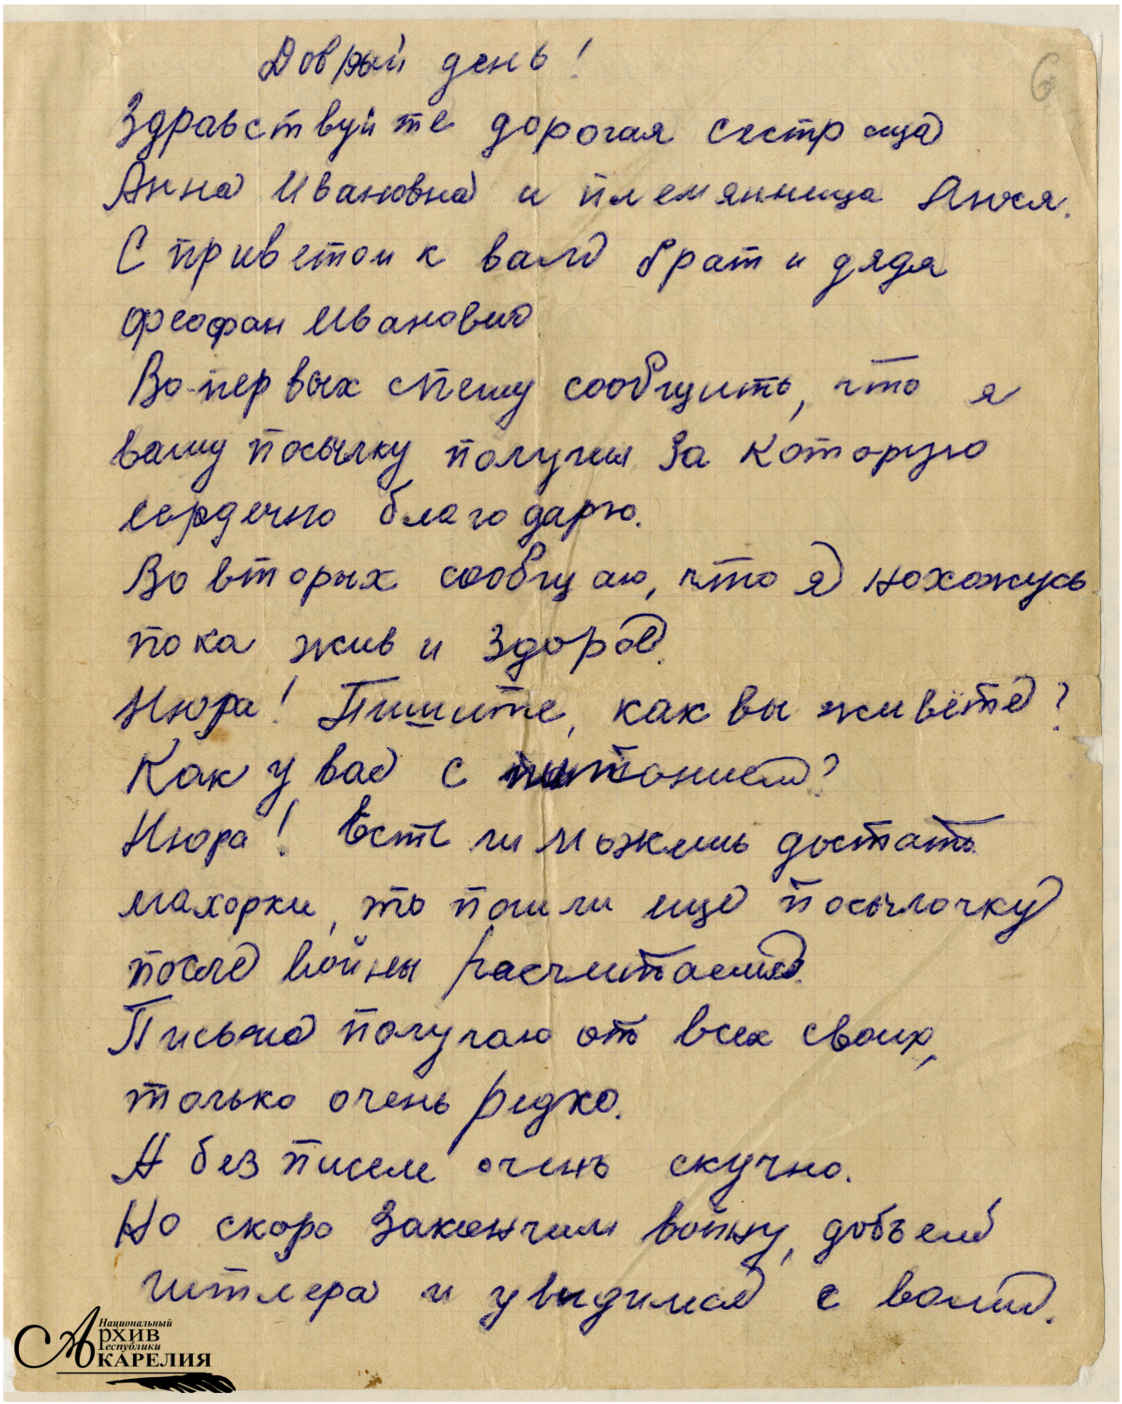 6
Добрый день!
Здравствуйте дорогая сестрица
Анна Ивановна и племянница Люся.
С приветом к вам брат и дядя
Феофан Иванович
Во-первых спешу сообщить, что я
вашу посылку получил за которую
сердечно благодарю.
Во вторых сообщаю, что я нохожусь
пока жив и здоров.
Нюра! Пишите, как вы живёте?
Как у вас с питанием?
Нюра! Есть ли можешь достать
махорки, то пошли еще посылочку
после войны расчитаемся.
Письма получаю от всех своих,
только очень редко.
А без писем очень скучно.
Но скоро закончим войну, добъем
гитлера и увидимся с вами.
Национальный
Архив
Республики
Карелия